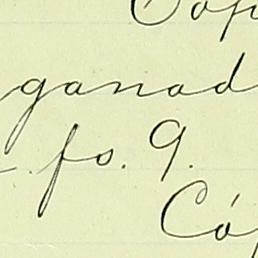 Cop
ganad
fo. 9.
Cóp